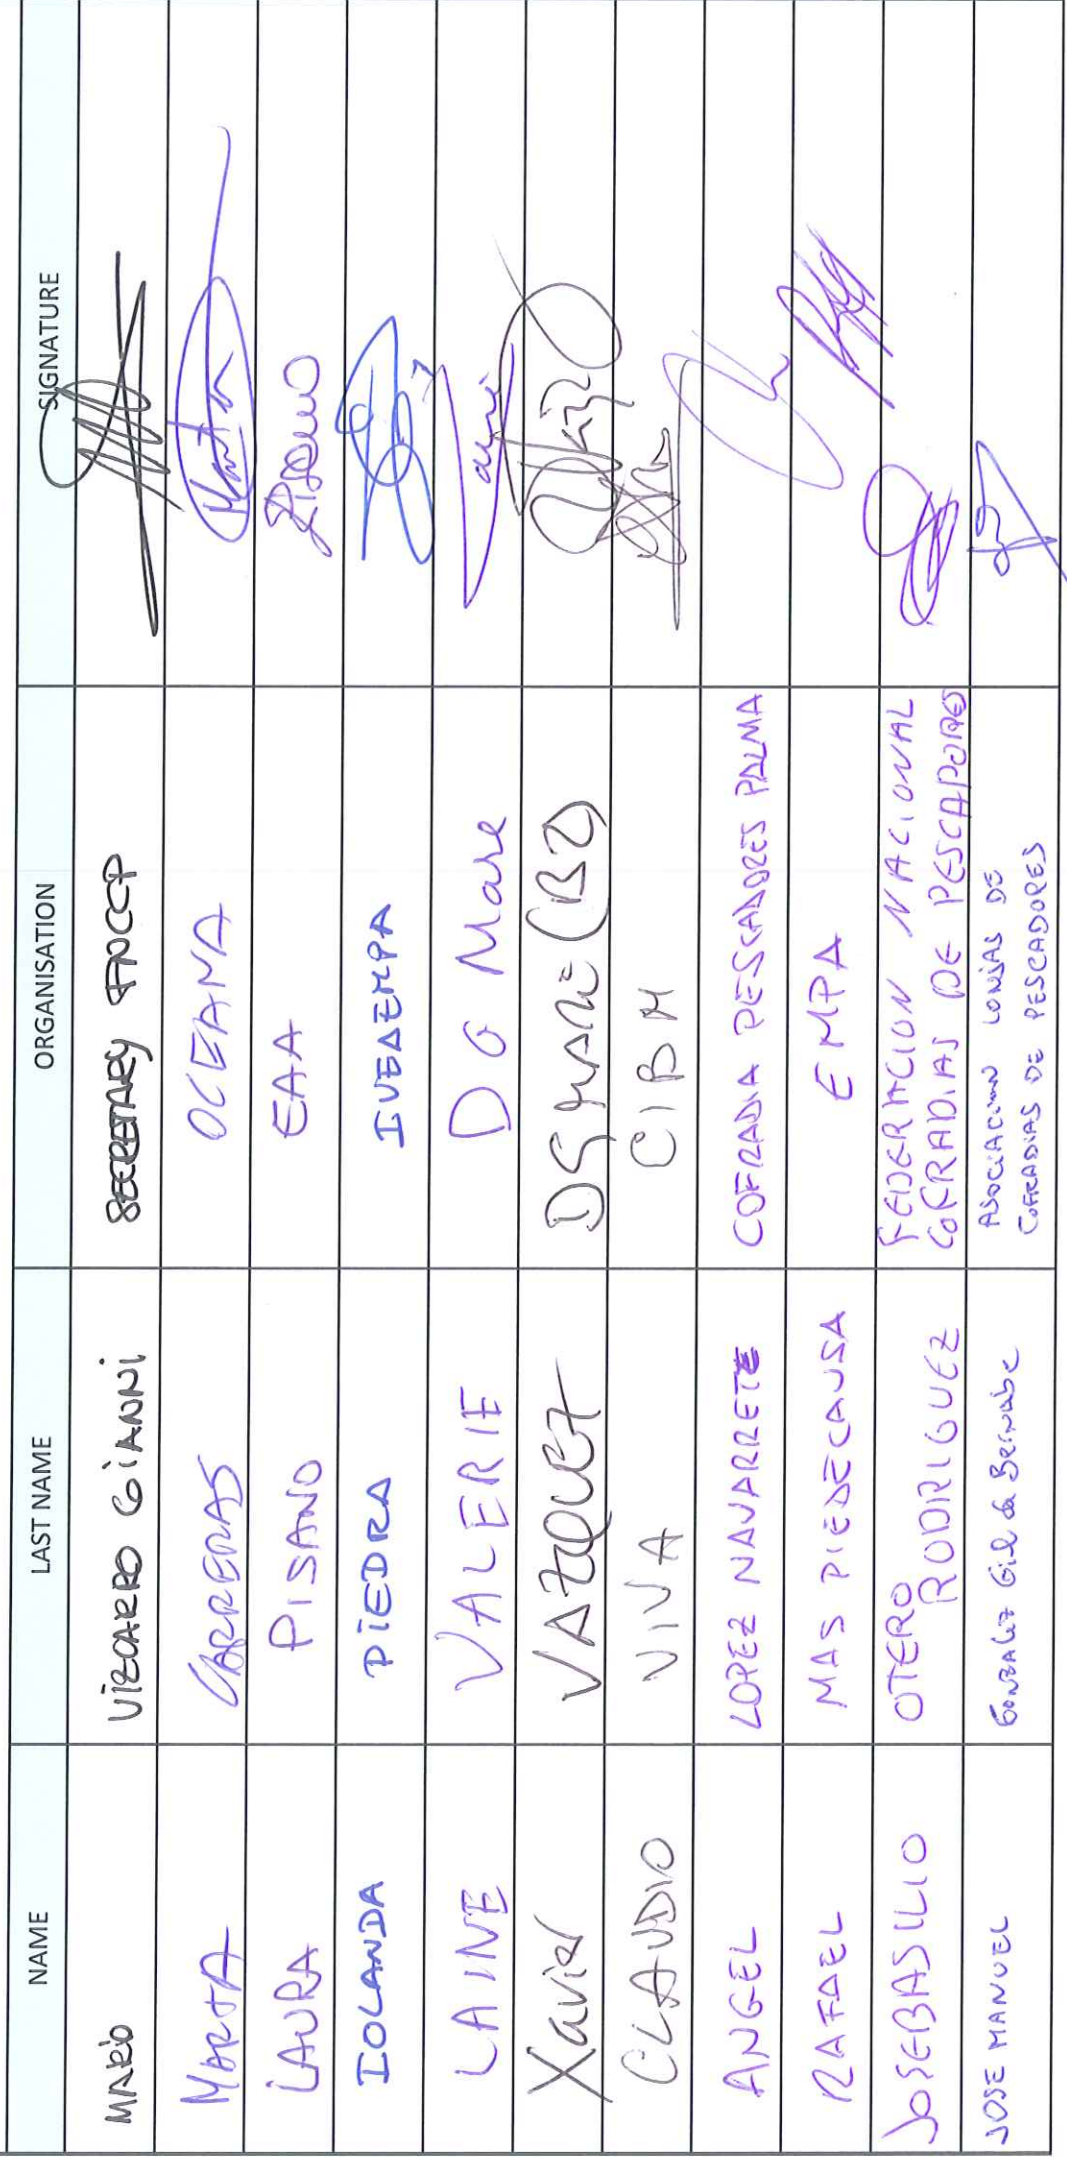 NAME LAST NAME ORGANISATION SIGNATURE
MARIO VIZCARRO GIANNI SECRETARY FNCCP
MARTA CARRERAS OCEANA
LAURA PISANO EAA Pisano
IOLANDA PIEDRA
LAINE VALERIE DG Mare
Xavier VAZQUEZ DG MARE (B2)
CLAUDIO VIVA CIBM
ANGEL LOPEZ NAVARRETE COFRADIA PESCADORES PALMA
RAFAEL MAS PIEDECAUSA EMPA
JOSE BASILIO OTERO RODRIGUEZ FEDERACION NACIONAL
COFRADIAS DE PESCADORES
JOSE MANUEL GONZALEZ Gil de Bernabe ASOCIACION LONJAS DE
COFRADIAS DE PESCADORES